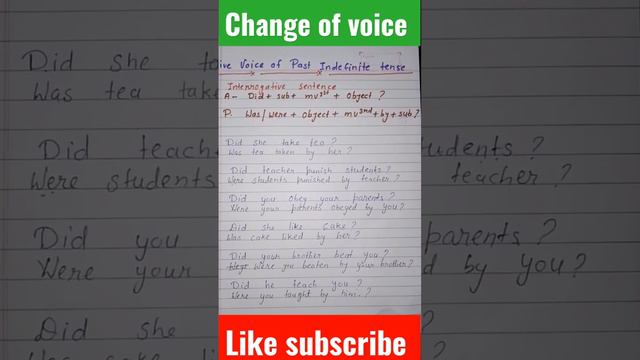 Change of voice
ive Voice of Past Indefinite tense
Interrogative sentence
A- Did + sub + + Object ?
P. Was/Were + Object + + by + sub ?
Did she take tea ?
Was tea taken by her ?
Did teacher punish students ?
Were students punished by teacher ?
Did you obey your parents ?
Were your parents obeyed by you ?
Did she like cake ?
Was cake liked by her ?
Did your brother beat you ?
Were you beaten by your brother ?
Did he teach you ?
Were you taught by him. ?
Like subscribe
Did she to
Was tea take
Did teach
tudents ?
Were students
teacher ?
Did you
parents ?
Were your
d by you ?
Did she